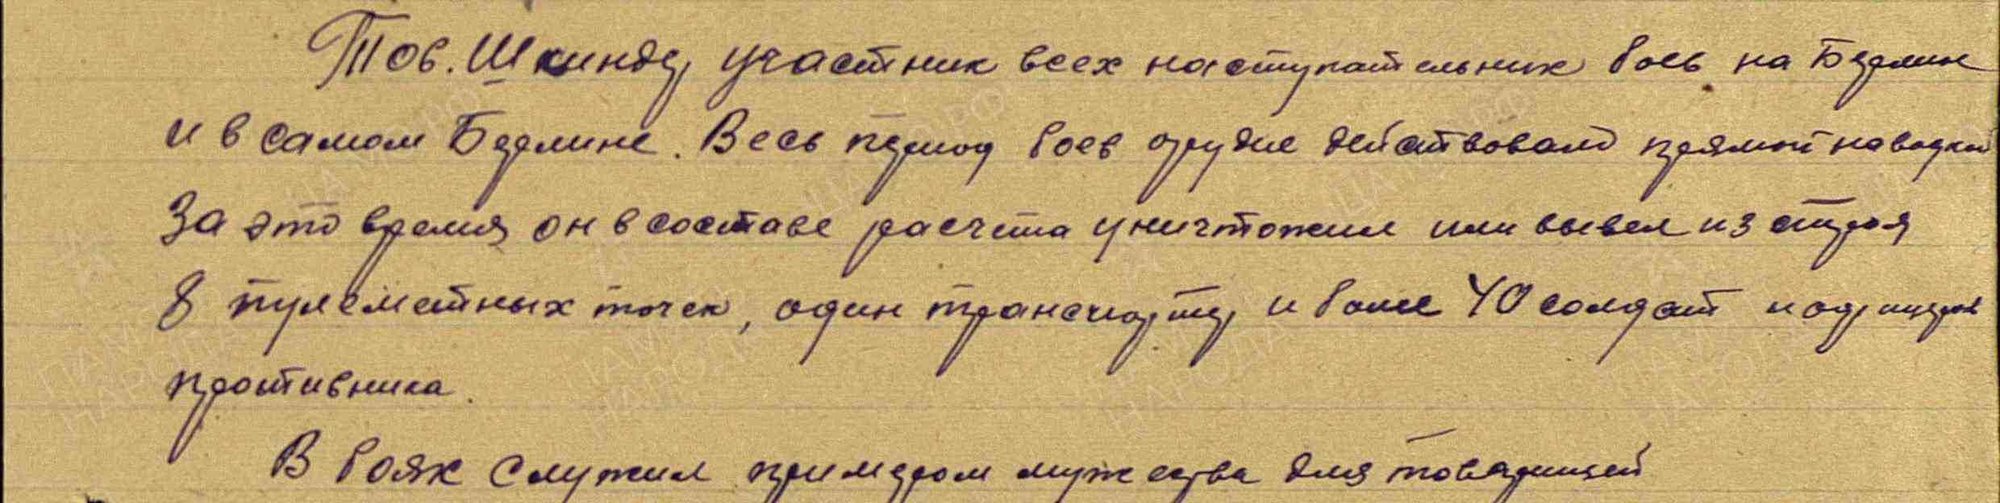 Тов. Шкиндер участник всех наступательных боев на Берлин
и в самом Берлине. Весь период боев орудие действовало прямой наводкой
За это время он в составе расчета уничтожил или вывел из строя
8 пулеметных точек, один транспортер и более 40 солдат и офицеров
противника.
В боях служил примером мужества для товарищей